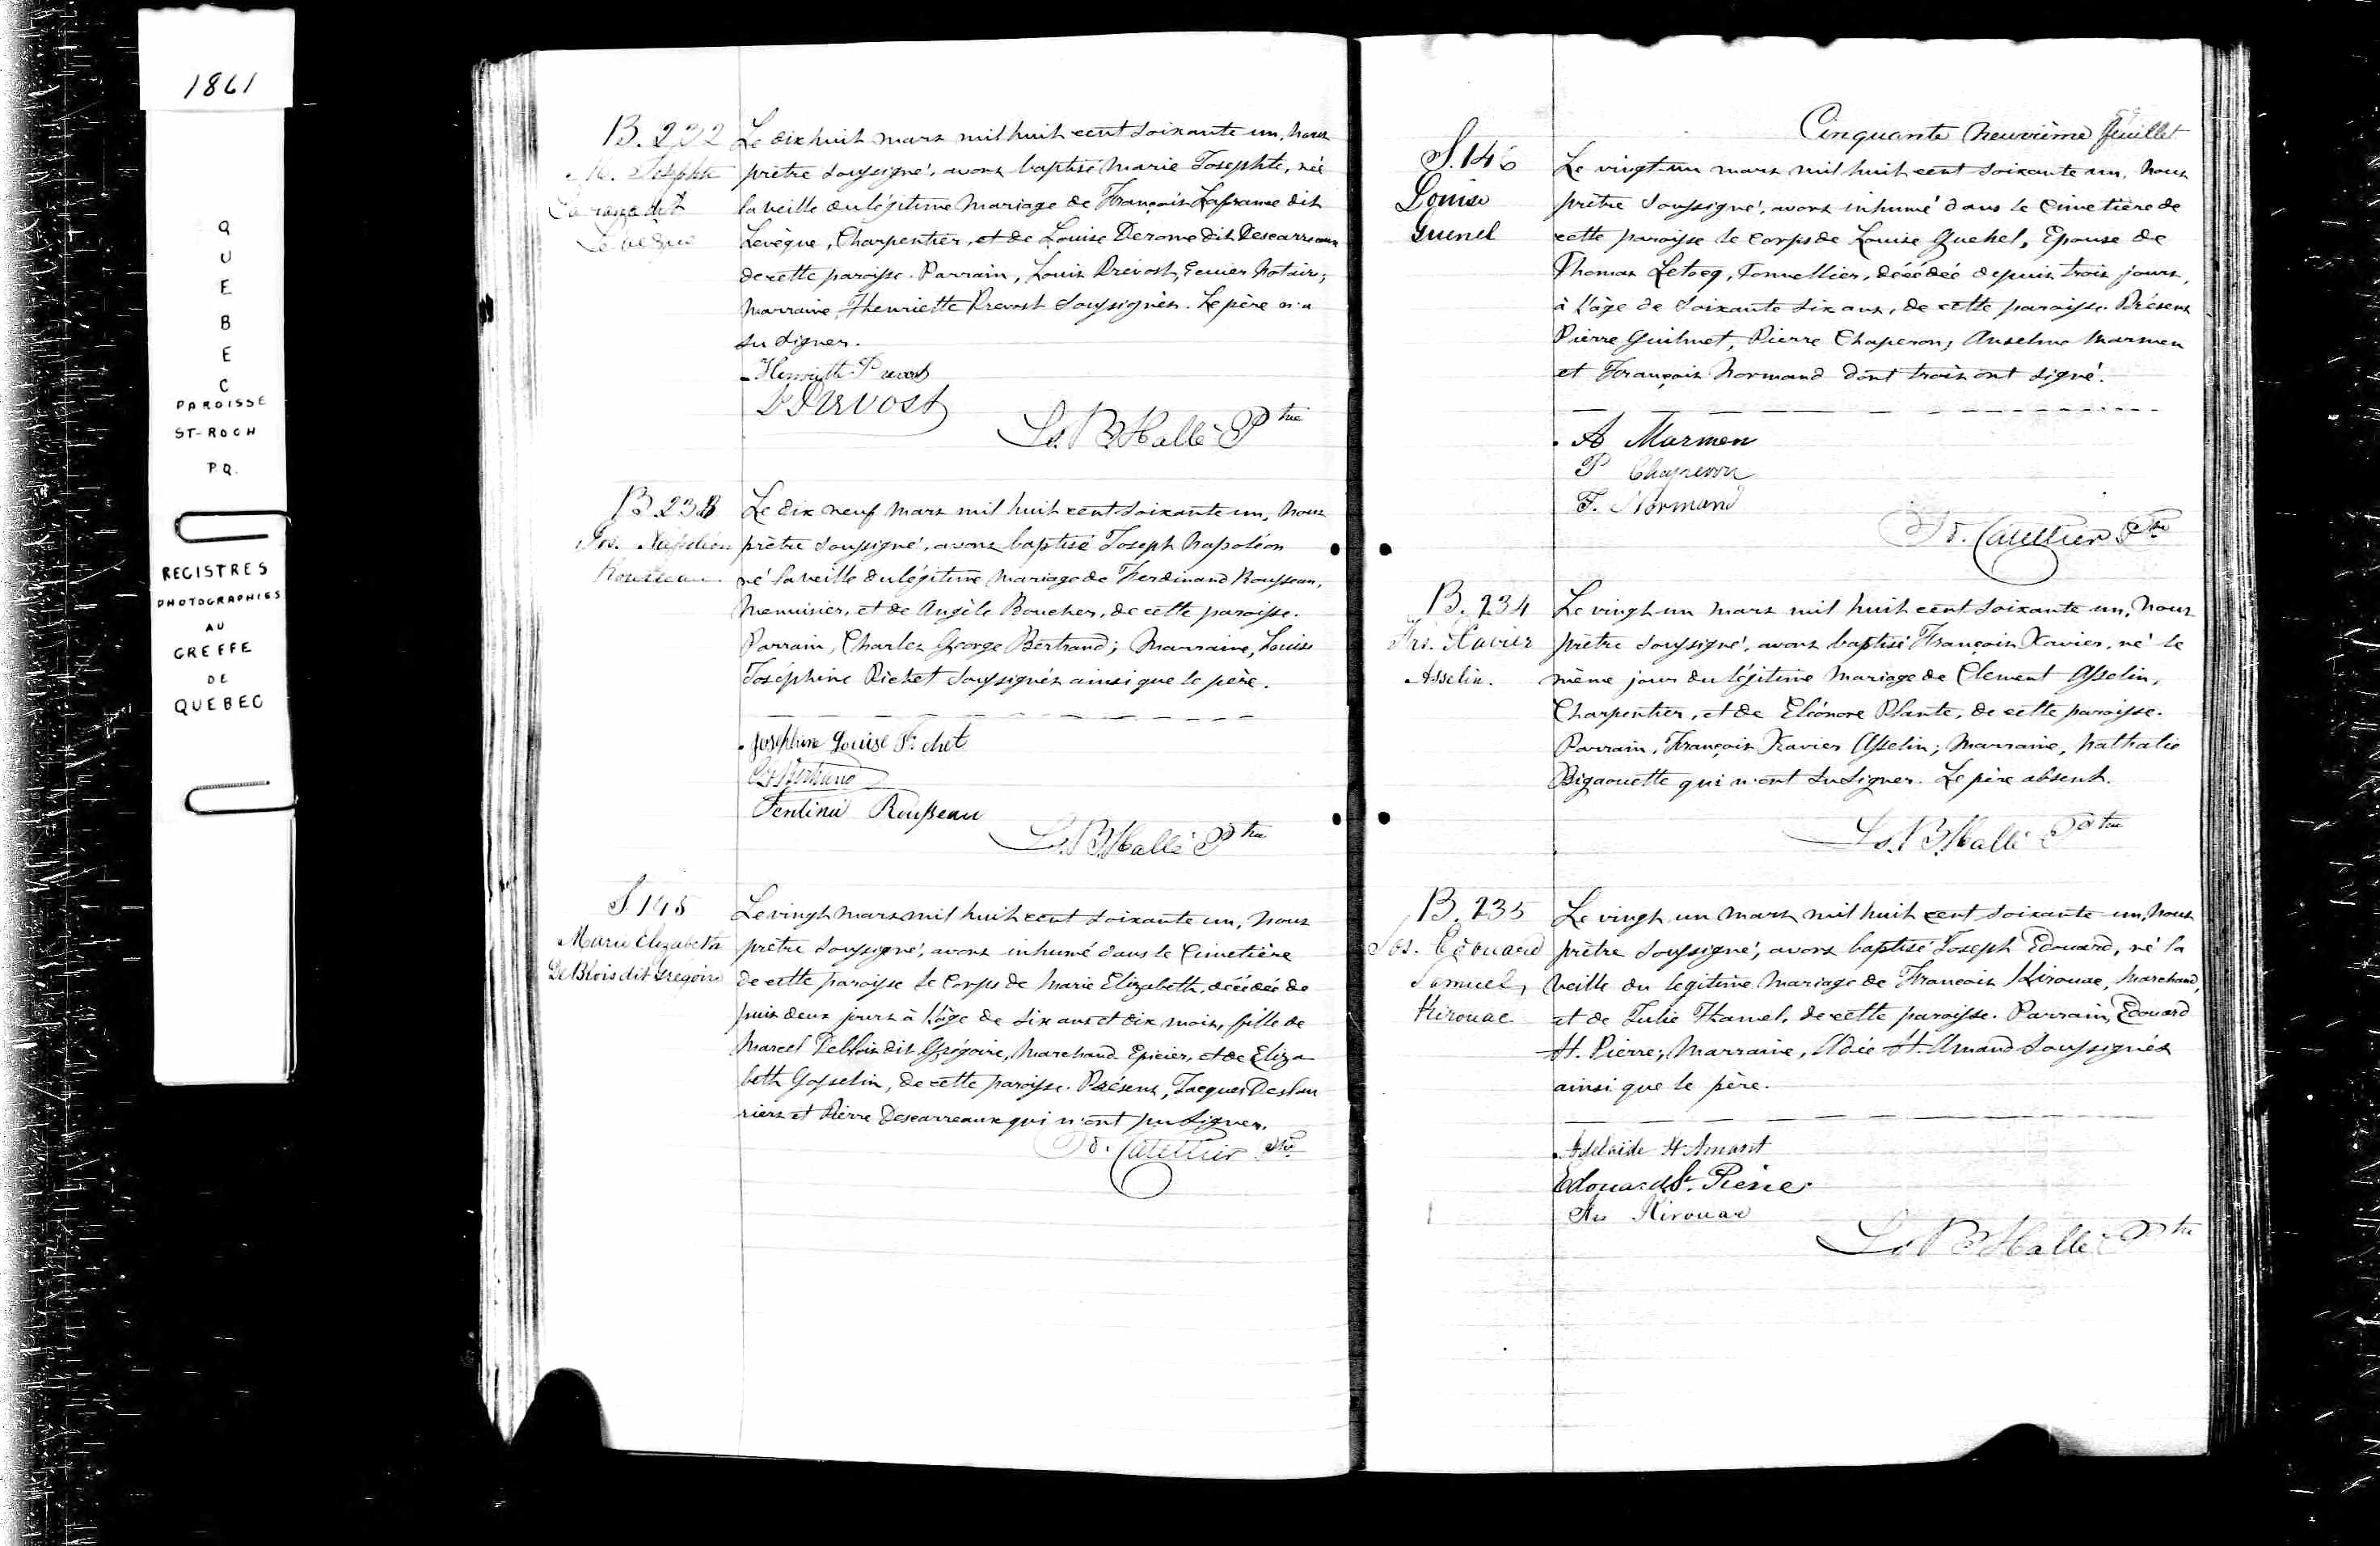 1861
QUEBEC
PAROISSE
ST-ROCH
P.Q.
REGISTRES
PHOTOGRAPHIES
AU
GREFFE
DE
QUEBEC
B. 232
M. Josephte
Lafrance dit
Levêque
Le dix huit mars mil huit cent soixante un, nous
prêtre soussigné, avons baptisé Marie Josephte, née
la veille du légitime mariage de François Lafrance dit
Levêque, Charpentier, et de Louise Derome dit Descarreaux
de cette paroisse. Parrain, Louis Prévost, Ecuier Notaire;
Marraine, Henriette Prevost soussignés. Le père n'a
su signer.
Henriette Prevost
L Prévost
Ls. B Hallé Ptre
B 233
Jos. Napoléon
Rousseau
Le dix neuf mars mil huit cent soixante un, nous
prêtre soussigné, avons baptisé Joseph Napoléon
né la veille du légitime mariage de Ferdinand Rousseau,
Menuisier, et de Angèle Boucher, de cette paroisse.
Parrain, Charles George Bertrand; Marraine, Louise
Joséphine Richet soussignés ainsi que le père.
Josephine Louise Richet
Bertrand
Ferdina Rousseau
Ls. B. Hallé Ptre
S 145
Marie Elizabeth
De Blois dit Gregoire
Le vingt mars mil huit cent soixante un, nous
prêtre soussigné, avons inhumé dans le Cimetière
de cette paroisse le Corps de Marie Elizabeth, décédée de
puis deux jours à l'âge de six ans et dix mois, fille de
Marcel Deblois dit Grégoire, Marchand Epicier, et de Eliza
beth Gosselin, de cette paroisse. Présens, Jacques Deslau
riers et Pierre Descarreaux qui n'ont pu signer.
Ptre
Cinquante neuvième feuillet
59
S. 146
Louise
Guenel
Le vingt-un mars mil huit cent soixante un, nous
prêtre soussigné, avons inhumé dans le Cimetière de
cette paroisse le Corps de Louise Guenel, Epouse de
Thomas Letocq, Tonnellier, décédée depuis trois jours,
à l'âge de soixante six ans, de cette paroisse. Présens
Pierre Guilmet, Pierre Chaperon, Anselme Marmen
et François Normand dont trois ont signé.
A Marmen
P Chaperon
F. Normand
Ptre
B. 234
Frs. Xavier
Asselin.
Le vingt un mars mil huit cent soixante un, nous
prêtre soussigné, avons baptisé François Xavier, né le
même jour du légitime mariage de Clement Asselin,
Charpentier, et de Eléonore Plante, de cette paroisse.
Parrain, François Xavier Asselin; Marraine, Nathalie
Bigaouette qui n'ont su signer. Le père absent.
Ls. B. Hallé Ptre
B. 235
Jos. Edouard
Samuel,
Kirouac
Le vingt un mars mil huit cent soixante un, nous
prêtre soussigné, avons baptisé Joseph Edouard, né la
veille du légitime mariage de François Kirouac, Marchand,
et de Julie Hamel, de cette paroisse. Parrain, Edouard
St. Pierre; Marraine, Adée St. Amand soussignés
ainsi que le père.
Adelaïde St Amant
Edouard St. Pierre
Frs Kirouac
Ls B Hallé Ptre